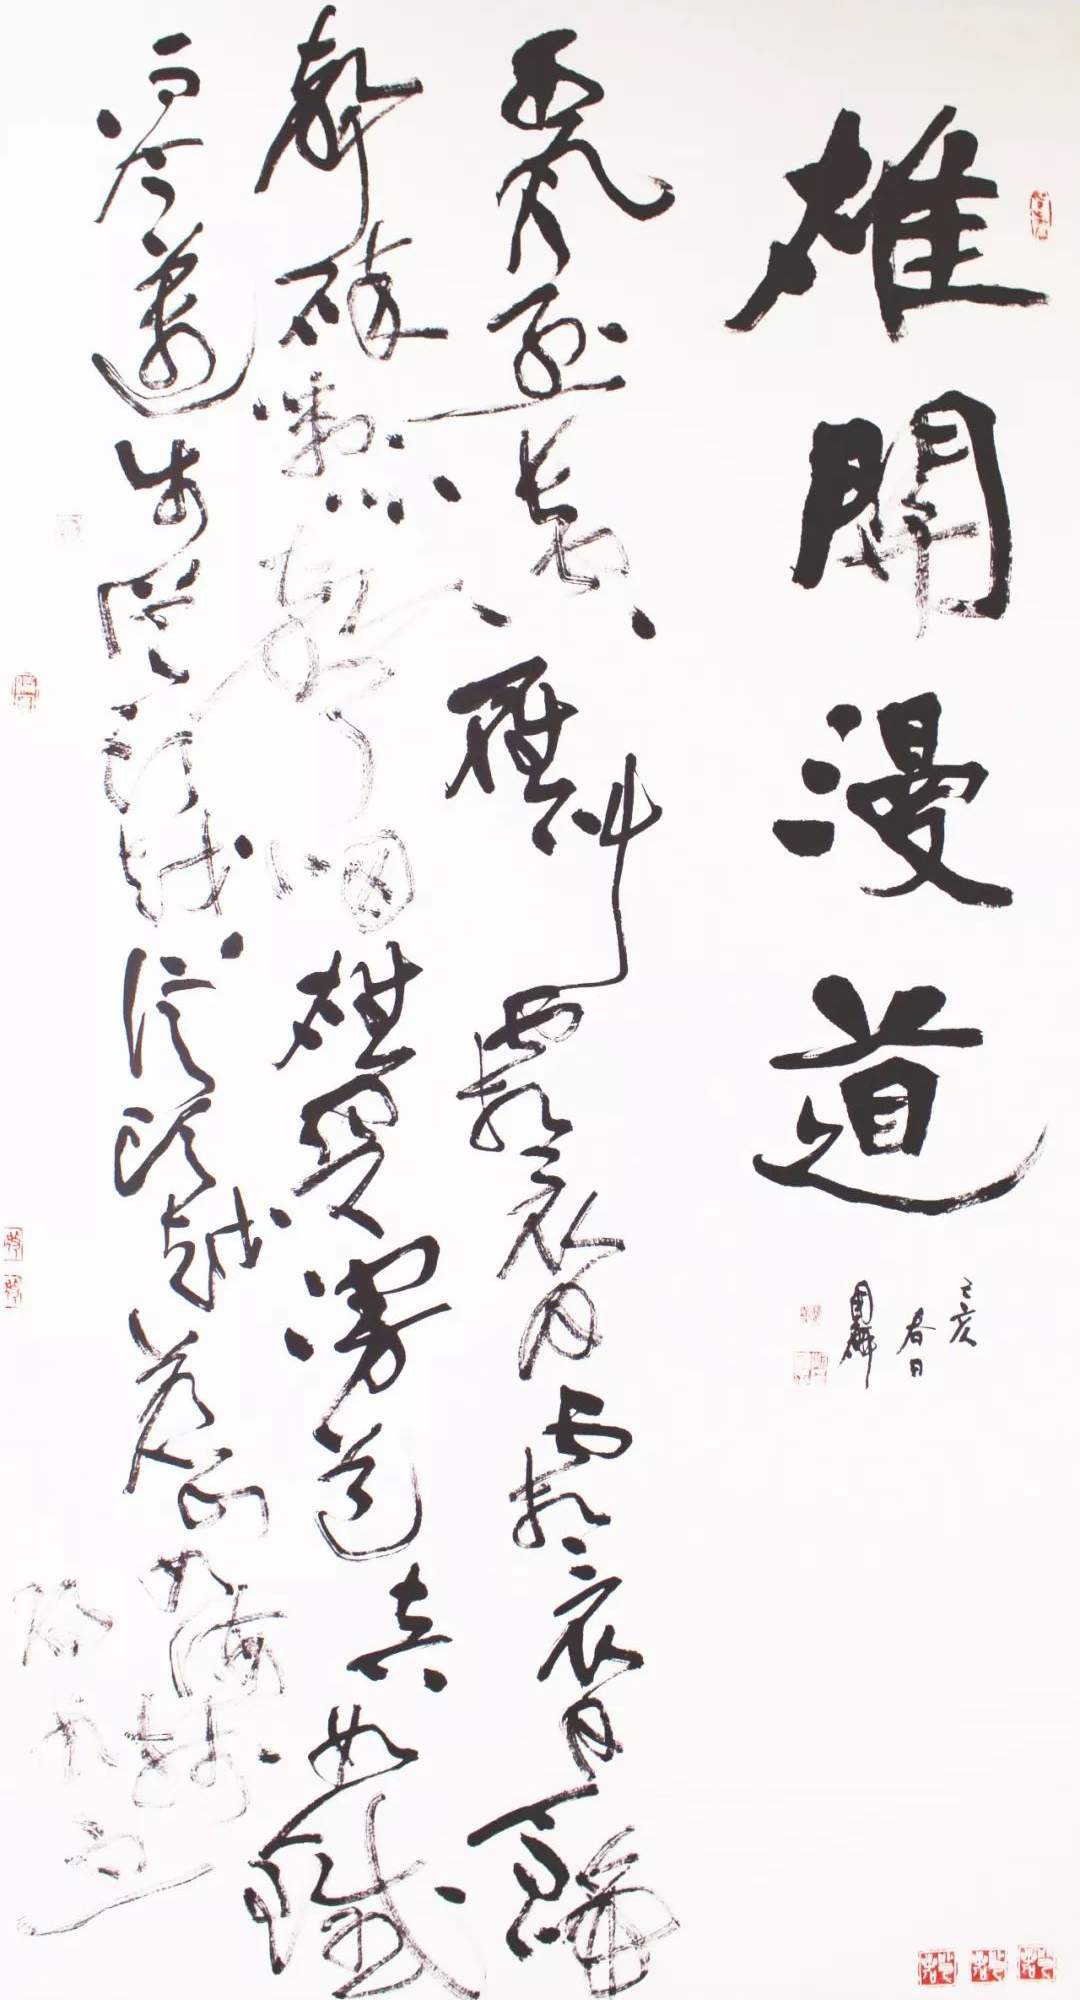 雄關漫道
己亥
春日
西風烈長空雁叫霜晨月霜晨月馬蹄
聲碎喇叭聲咽雄關漫道真如鐵
而今邁步從頭越從頭越蒼山如海殘
陽如血